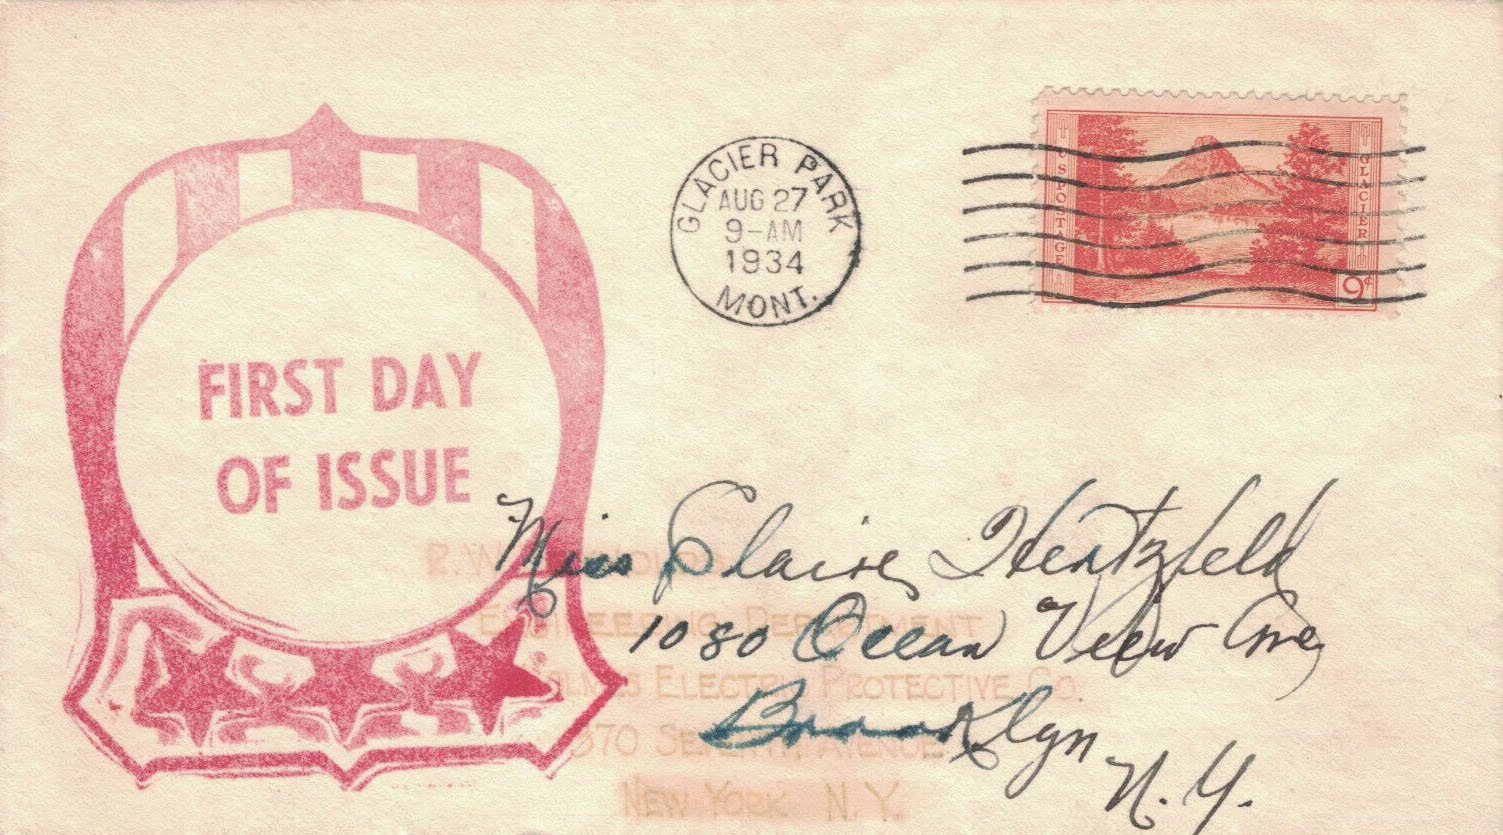 FIRST DAY
OF ISSUE
GLACIER PARK
AUG 27
9-AM
1934
MONT.
U S POSTAGE
GLACIER
9¢
Miss Claire Hertzfeld
1080 Ocean View Ave
Brooklyn
N. Y.
R. W.
ENGINEERING DEPARTMENT
ELECTRIC PROTECTIVE CO.
370 SEVENTH AVENUE
NEW YORK N. Y.